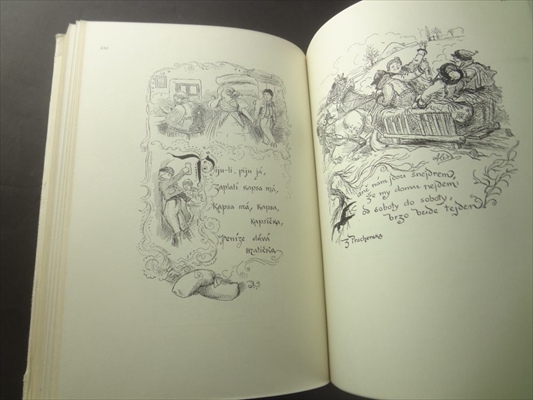 Piju-li, piju já,
zaplatí kapsa má,
Kapsa má, kapsa,
kapsička,
Peníze dává
matička.
nám jdou šnejdrem,
že my domu nejdem
od soboty do soboty
brzo bude tejden.
Z Prachenska